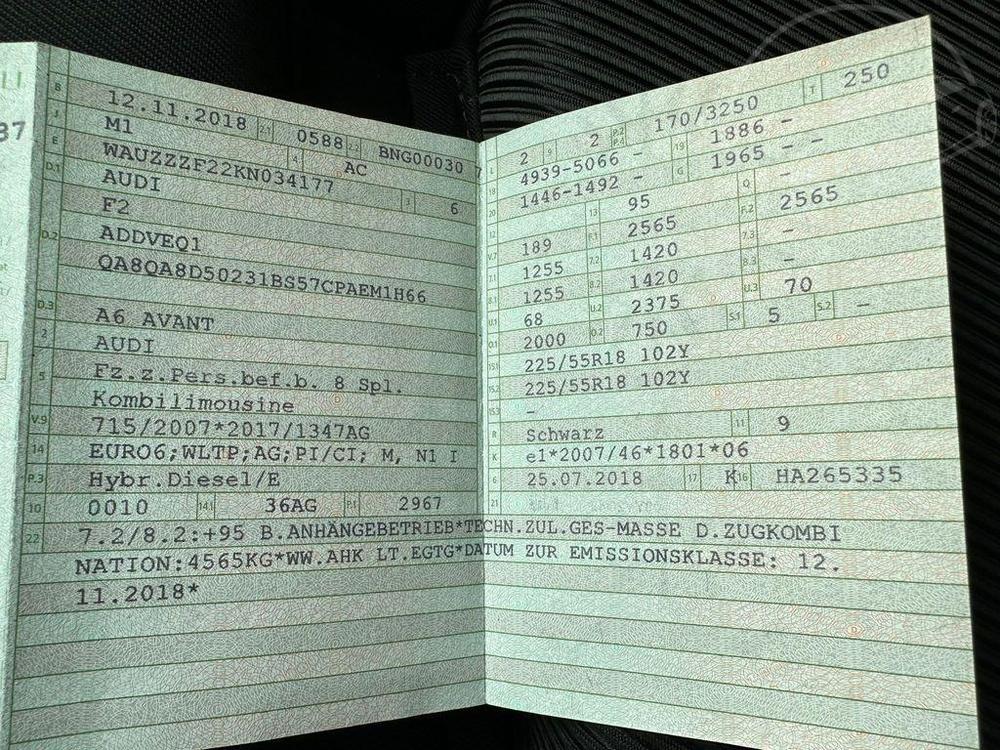 37
B 12.11.2018 2.1 0588 2.2 BNG00030 7
J M1 4 AC
E WAUZZZF22KN034177 3 6
D.1 AUDI
D.2 F2
ADDVEQ1
QA8QA8D50231BS57CPAEM1H66
D.3 A6 AVANT
2 AUDI
5 Fz.z.Pers.bef.b. 8 Spl.
Kombilimousine
V.9 715/2007*2017/1347AG
14 EURO6;WLTP;AG;PI/CI; M, N1 I
P.3 Hybr.Diesel/E
10 0010 14.1 36AG P.1 2967
L 2 9 2 P.2 P.4 170/3250 T 250
18 4939-5066 - 19 1886 -
20 1446-1492 - G 1965 - -
12 13 95 Q -
V.7 189 F.1 2565 F.2 2565
7.1 1255 7.2 1420 7.3 -
8.1 1255 8.2 1420 8.3 -
U.1 68 U.2 2375 U.3 70
O.1 2000 O.2 750 S.1 5 S.2 -
15.1 225/55R18 102Y
15.2 225/55R18 102Y
15.3 -
R Schwarz 11 9
K e1*2007/46*1801*06
6 25.07.2018 17 K 16 HA265335
21
22 7.2/8.2:+95 B.ANHÄNGEBETRIEB*TECHN.ZUL.GES-MASSE D.ZUGKOMBI
NATION:4565KG*WW.AHK LT.EGTG*DATUM ZUR EMISSIONSKLASSE: 12.
11.2018*